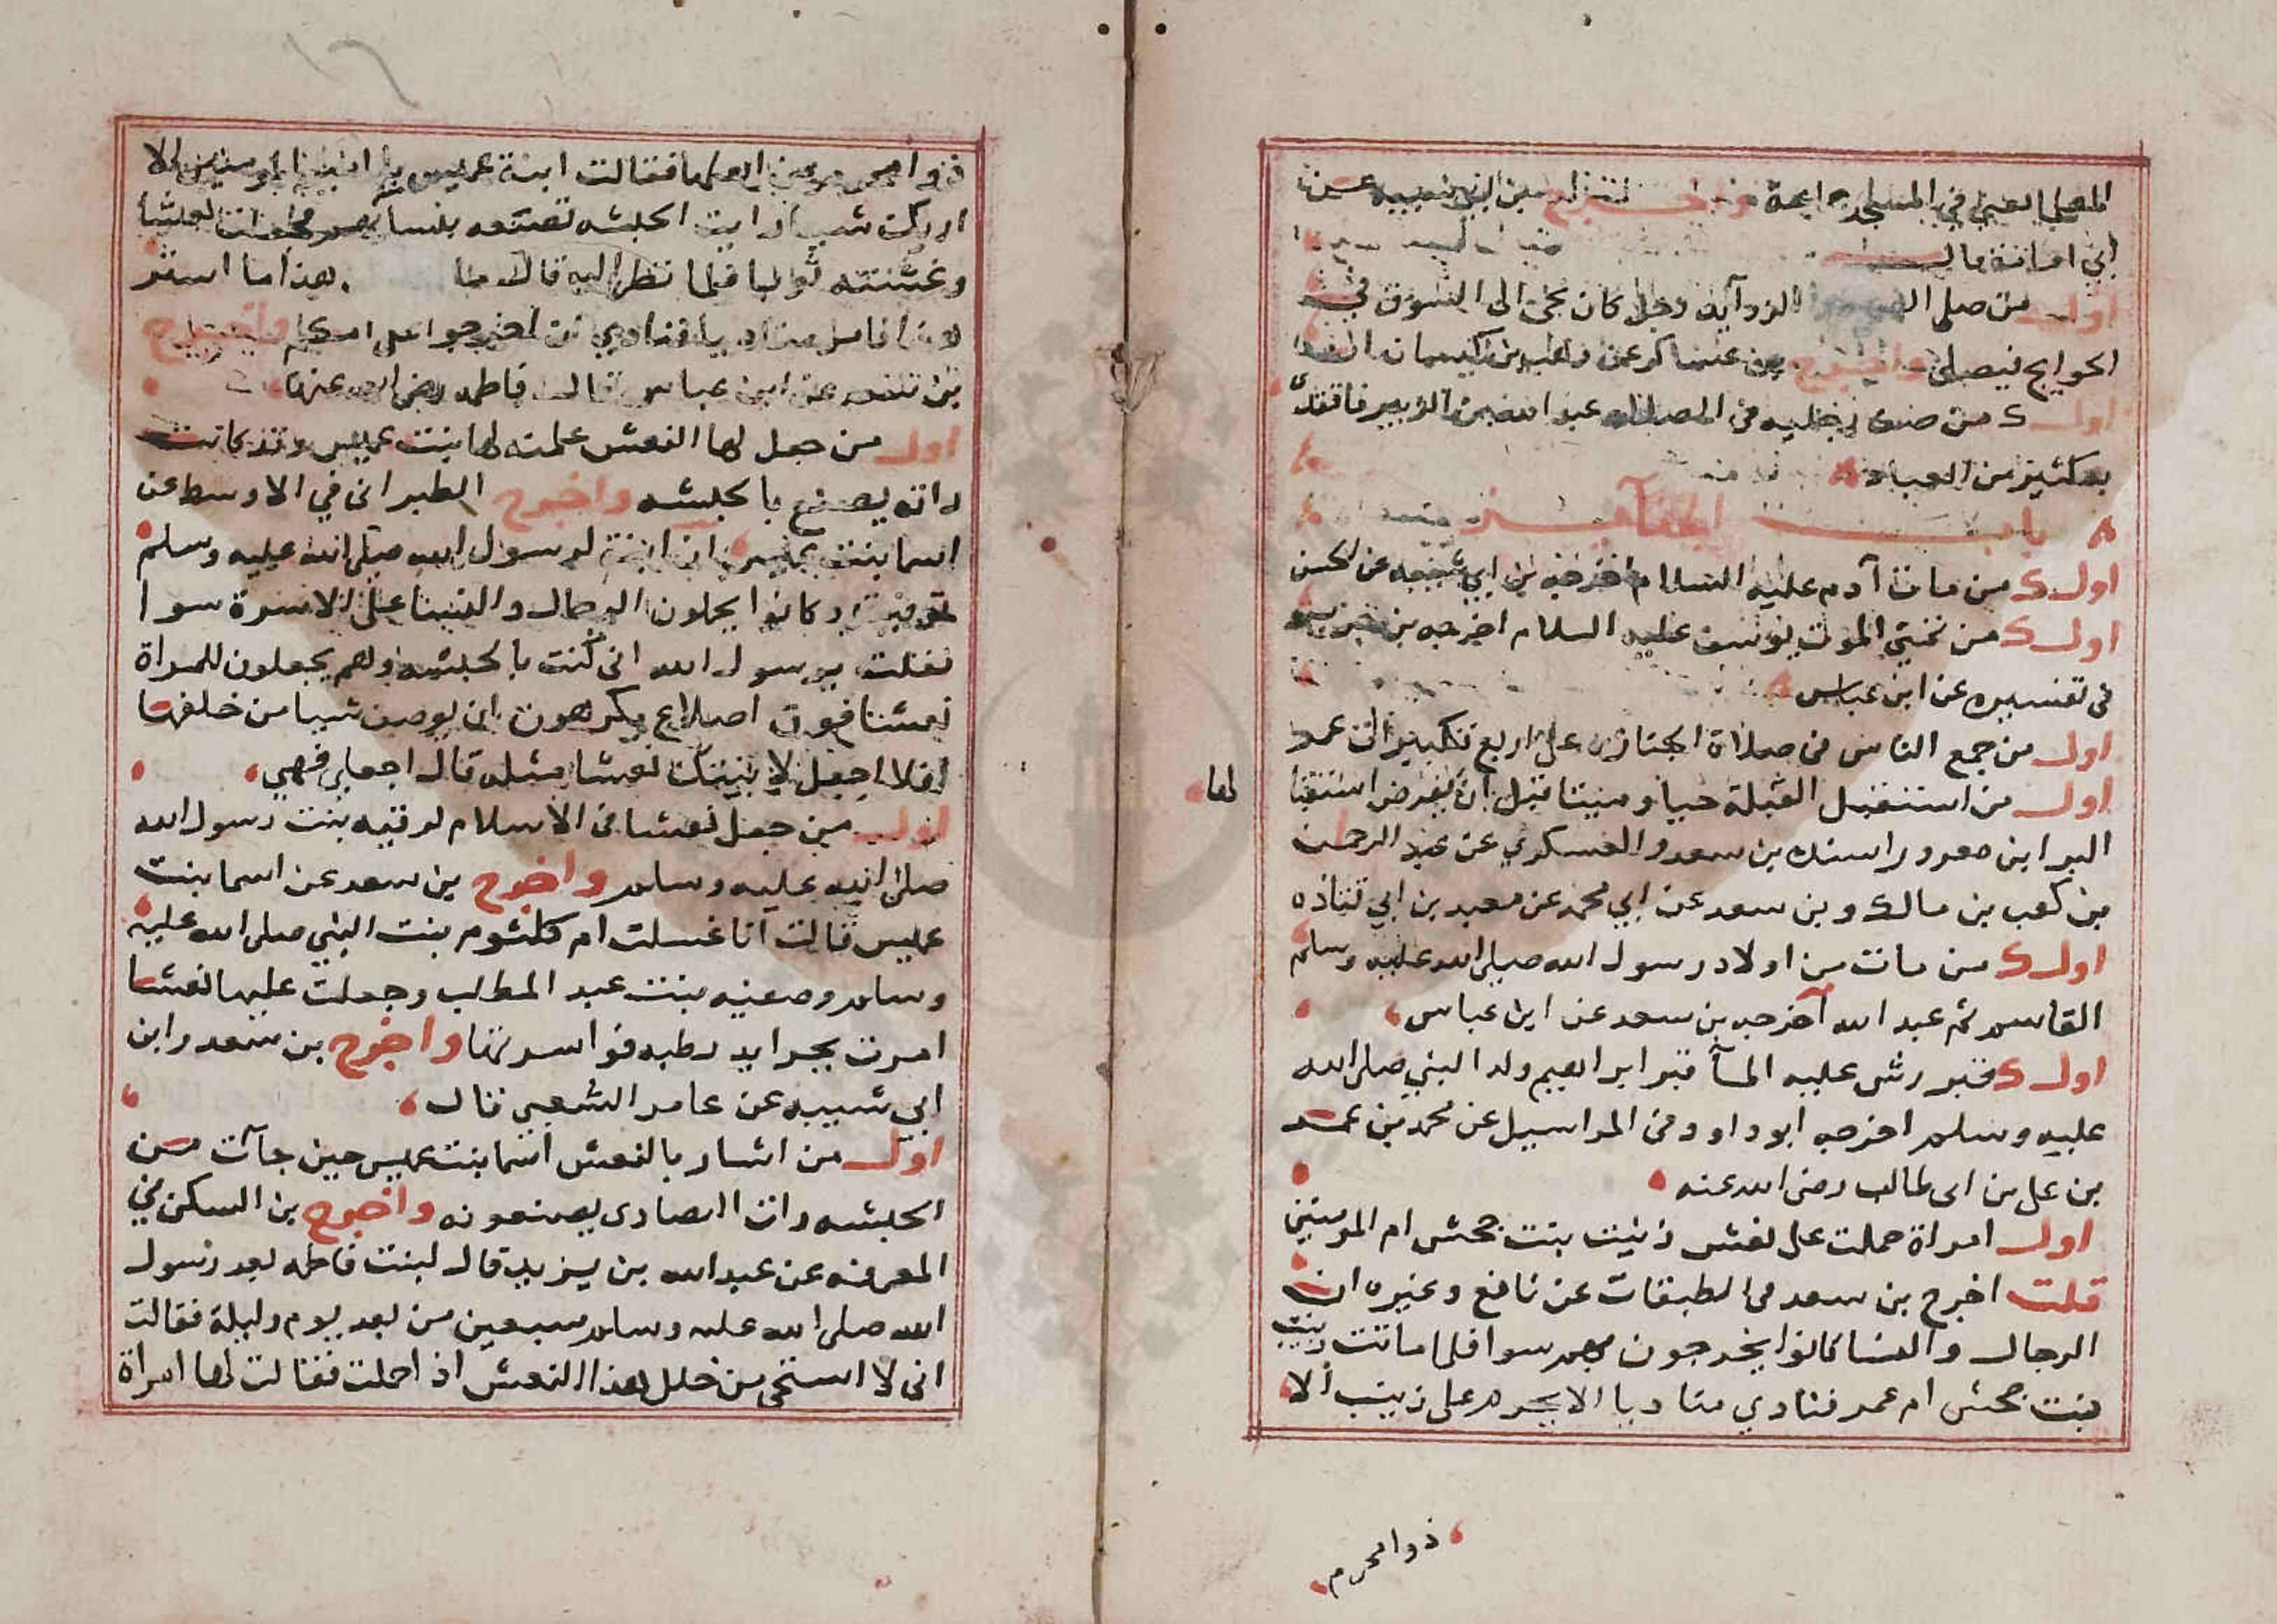 المصلى العيد في المسجد جماعة
ابي امامة قال
اول من صلى رجل كان يجي الى السوق في
الحوايج فيصلي واخرج بن عساكر عن وهب بن كيسان
اول من صف رجليه في الصلاة عبد الله بن الزبير فاقتدى
به كثير من العباد
باب الجنآيز
اول من مات آدم عليه السلام اخرجه بن ابي شيبه عن الحسن
اول من تمنى الموت يوسف عليه السلام اخرجه بن جرير
في تفسيره عن ابن عباس
اول من جمع الناس في صلاة الجنازه على اربع تكبيرات عمر
اول من استقبل القبلة حيا وميتا قبل ان يفرض استقبا
لها
البرا بن معرور اسنده بن سعد والعسكري عن عبد الرحمن
بن كعب بن مالك وبن سعد عن ابي محمد عن معبد بن ابي قتاده
اول من مات من اولاد رسول الله صلى الله عليه وسلم
القاسم ثم عبد الله اخرجه بن سعد عن ابن عباس
اول قبر رش عليه المآ قبر ابراهيم ولد النبي صلى الله
عليه وسلم اخرجه ابو داود في المراسيل عن محمد بن عمر
بن علي بن ابي طالب رضي الله عنه
اول امراة حملت على نعش زينب بنت جحش ام المومنين
قلت اخرج بن سعد في الطبقات عن نافع وغيره ان
الرجال والنسا كانوا يخرجون بهم سوا فلما ماتت زينب
بنت جحش ام عمر فنادي مناديا الا يخرم على زينب الا
ذوا محرم
ذوا محرم من اهلها فقالت ابنة عميس يا امير المومنين الا
اريك شيا رايت الحبشه تصنعه بنسايهم فجعلت نعشا
وغشته ثوبا فلما نظر اليه قال ما هذا ما استر
هذا فامر مناديا فنادي ان اخرجوا على امكم واخرج
بن سعد عن ابن عباس قال فاطمه رضي الله عنها
اول من جعل لها النعش عملته لها بنت عميس وقد كانت
راته يصنع بالحبشه واخرج الطبراني في الاوسط عن
اسما بنت عميس ان ابنة لرسول الله صلى الله عليه وسلم
توفيت وكانوا يحملون الرجال والنسا على الاسرة سوا
فقلت يرسول الله اني كنت بالحبشه وهم يجعلون للمراة
نعشا فوق اضلاع يكرهون ان يوصف شيا من خلفها
افلا اجعل لابنتك نعشا مثله قال اجعلي فهي
اول من جعل نعشا في الاسلام لرقيه بنت رسول الله
صلى الله عليه وسلم واخرج بن سعد عن اسما بنت
عميس قالت انا غسلت ام كلثوم بنت النبي صلى الله عليه
وسلم وصفيه بنت عبد المطلب وجعلت عليها نعشا
امرت بجرايد رطبه فواسرتها واخرج بن سعد وابن
ابي شيبه عن عامر الشعبي قال
اول من اشار بالنعش اسما بنت عميس حين جآت من
الحبشه رات النصارى يصنعونه واخرج بن السكن في
المعرفه عن عبد الله بن يزيد قال لبنت فاطمه بعد رسول
الله صلى الله عليه وسلم سبعين من بعد يوم وليلة فقالت
اني لا استحي من خلل هذا النعش اذا حملت فقالت لها امراة